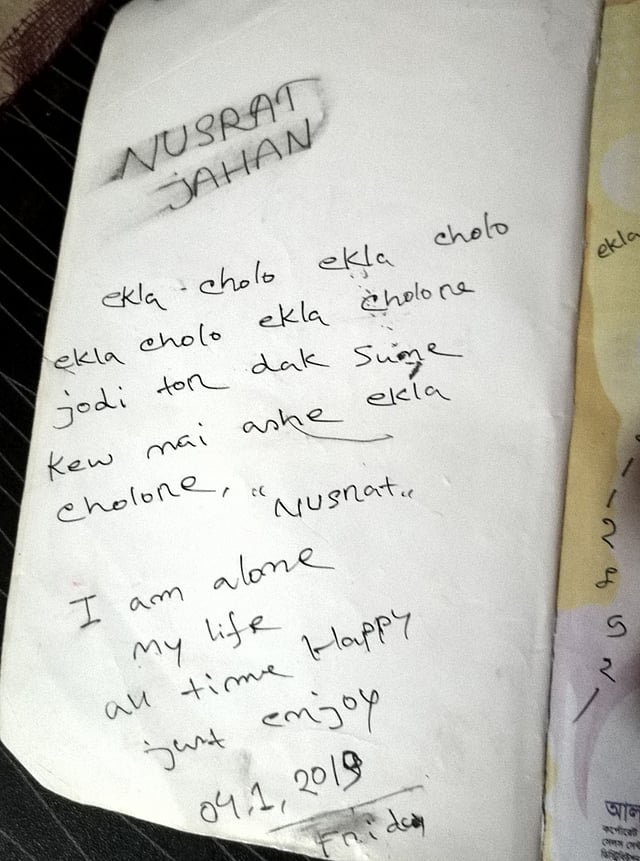 NUSRAT
JAHAN
ekla cholo ekla cholo
ekla cholo ekla cholone
jodi ton dak sune
kew nai ashe ekla
cholone, "Nusrat"
I am alone
my life
all time Happy
just enjoy
04,1,2019
Friday
ekla
1
1
2
8
5
2
1